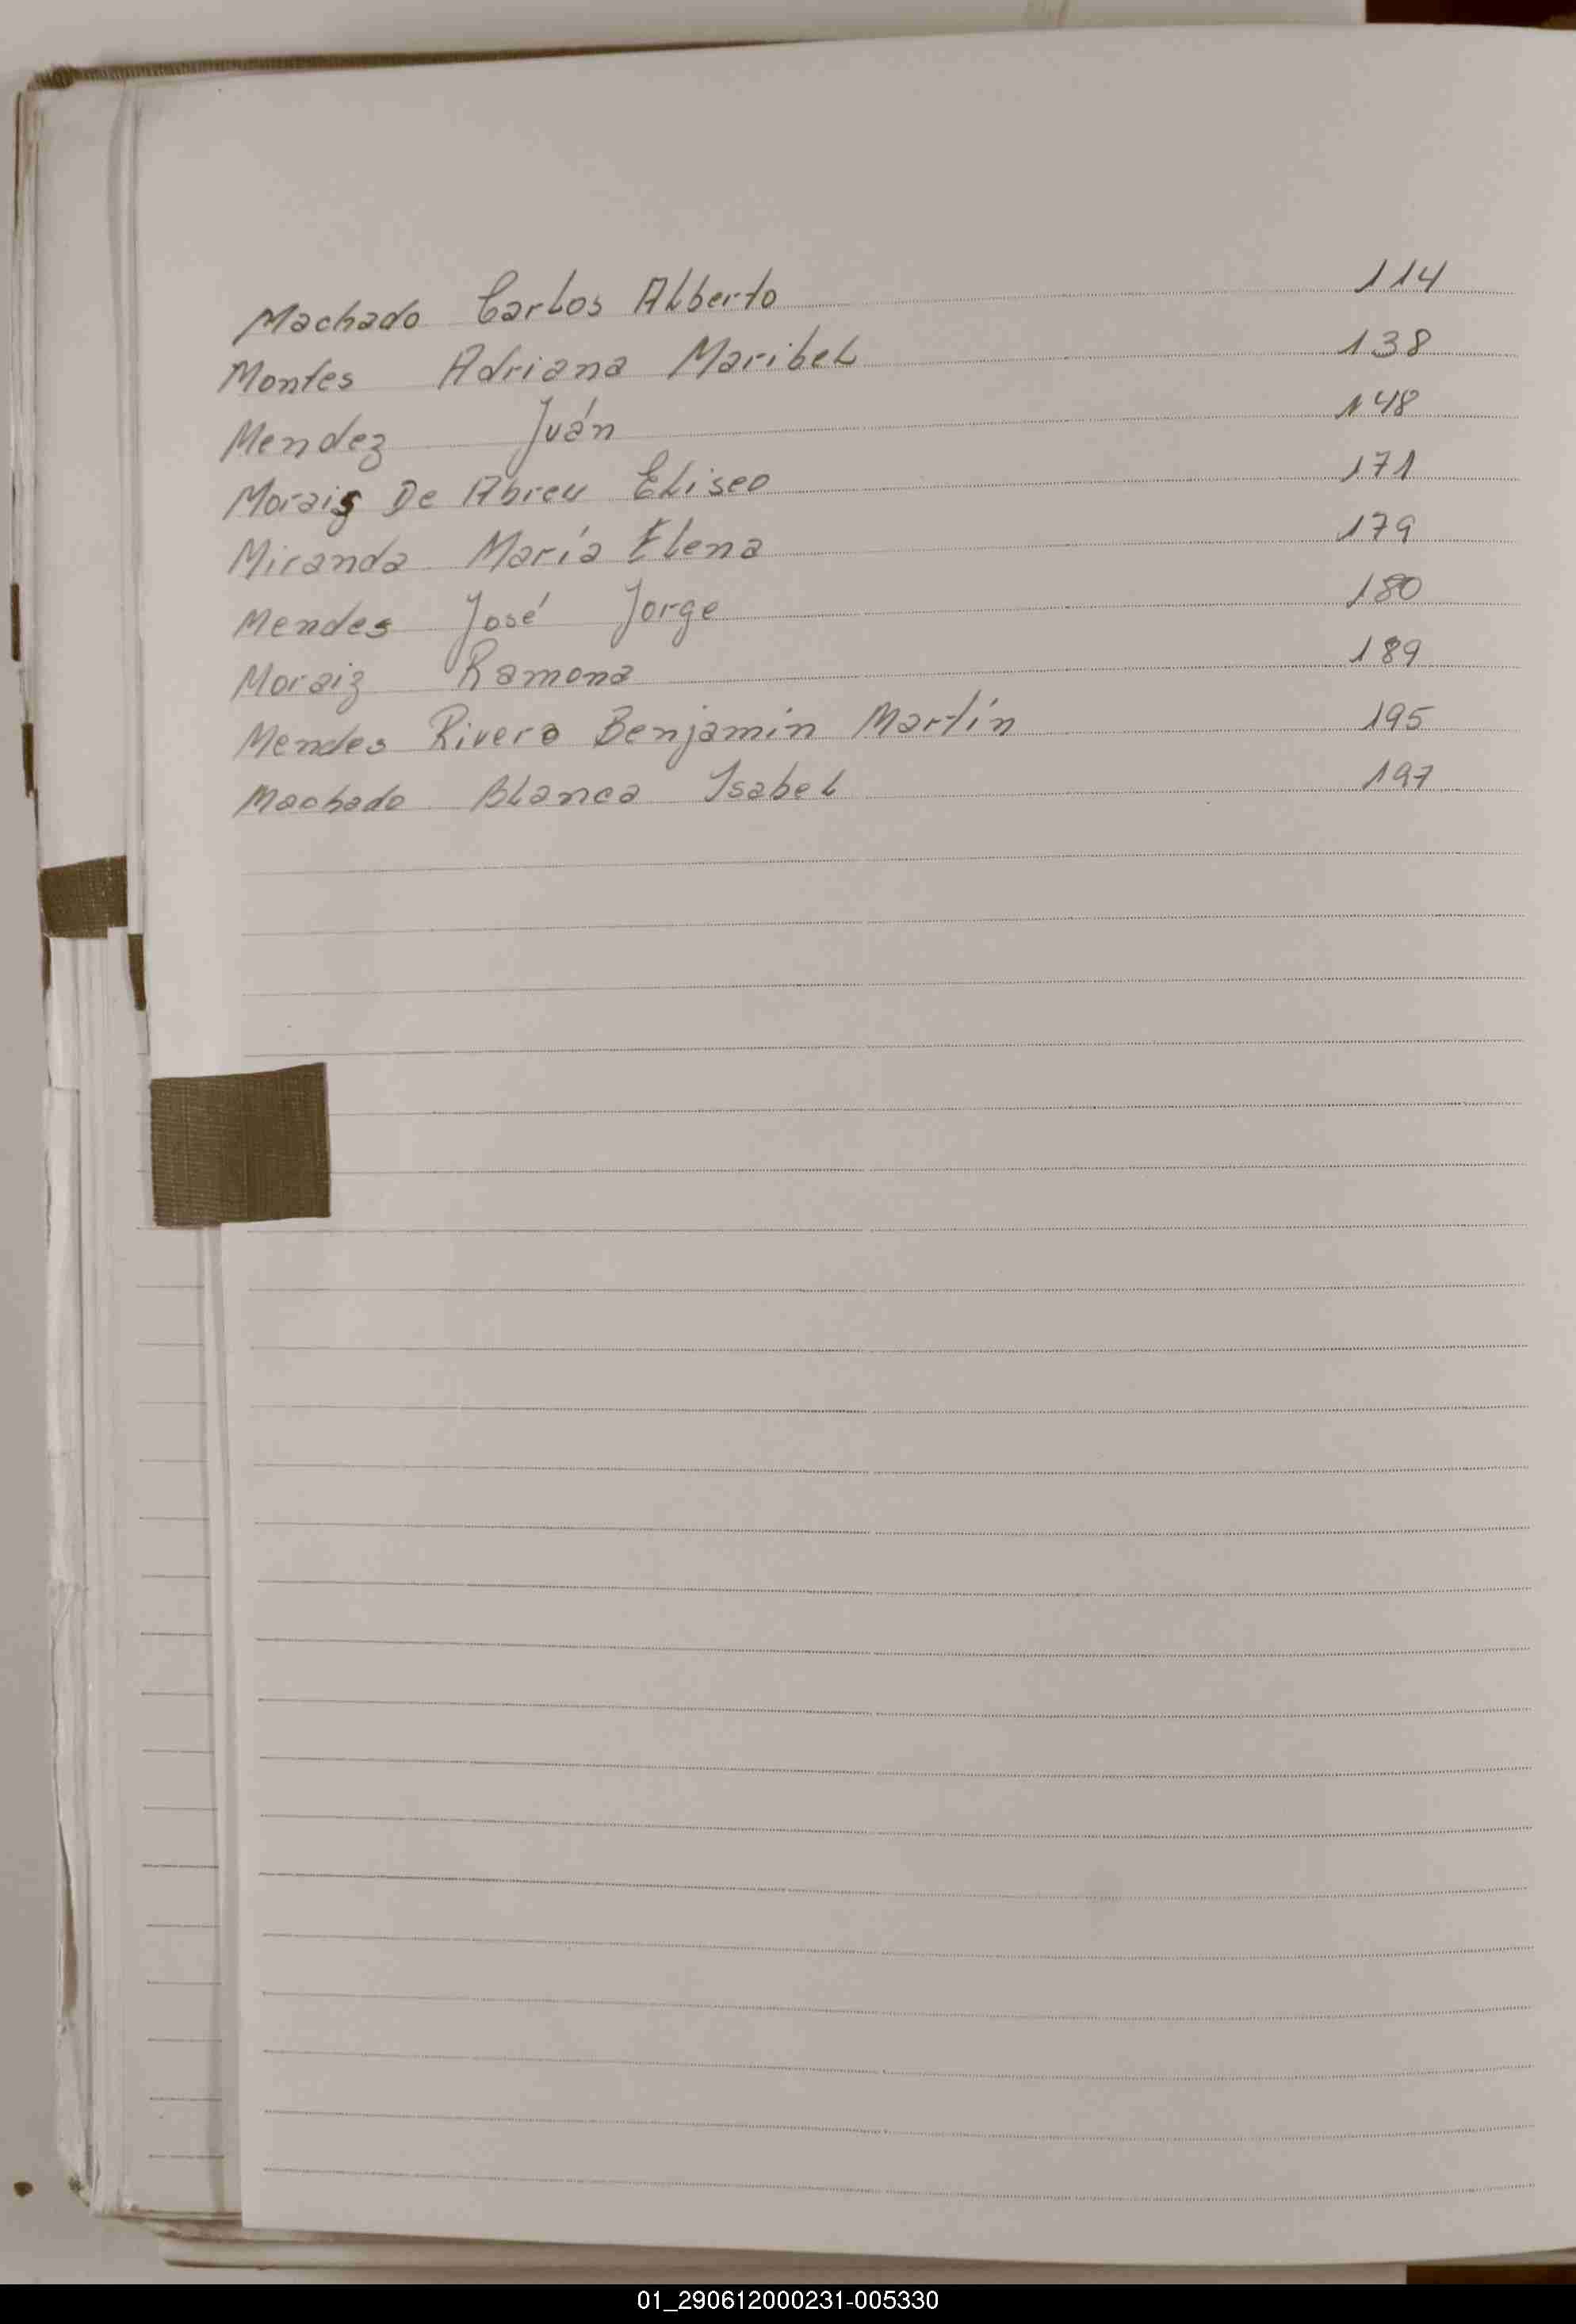 Machado Carlos Alberto 114
Montes Adriana Maribel 138
Mendez Iván 148
Morais De Abreu Eliseo 171
Miranda María Elena 179
Mendes José Jorge 180
Moraiz Ramona 189
Mendes Rivero Benjamin Martín 195
Machado Blanca Isabel 197
01_290612000231-005330